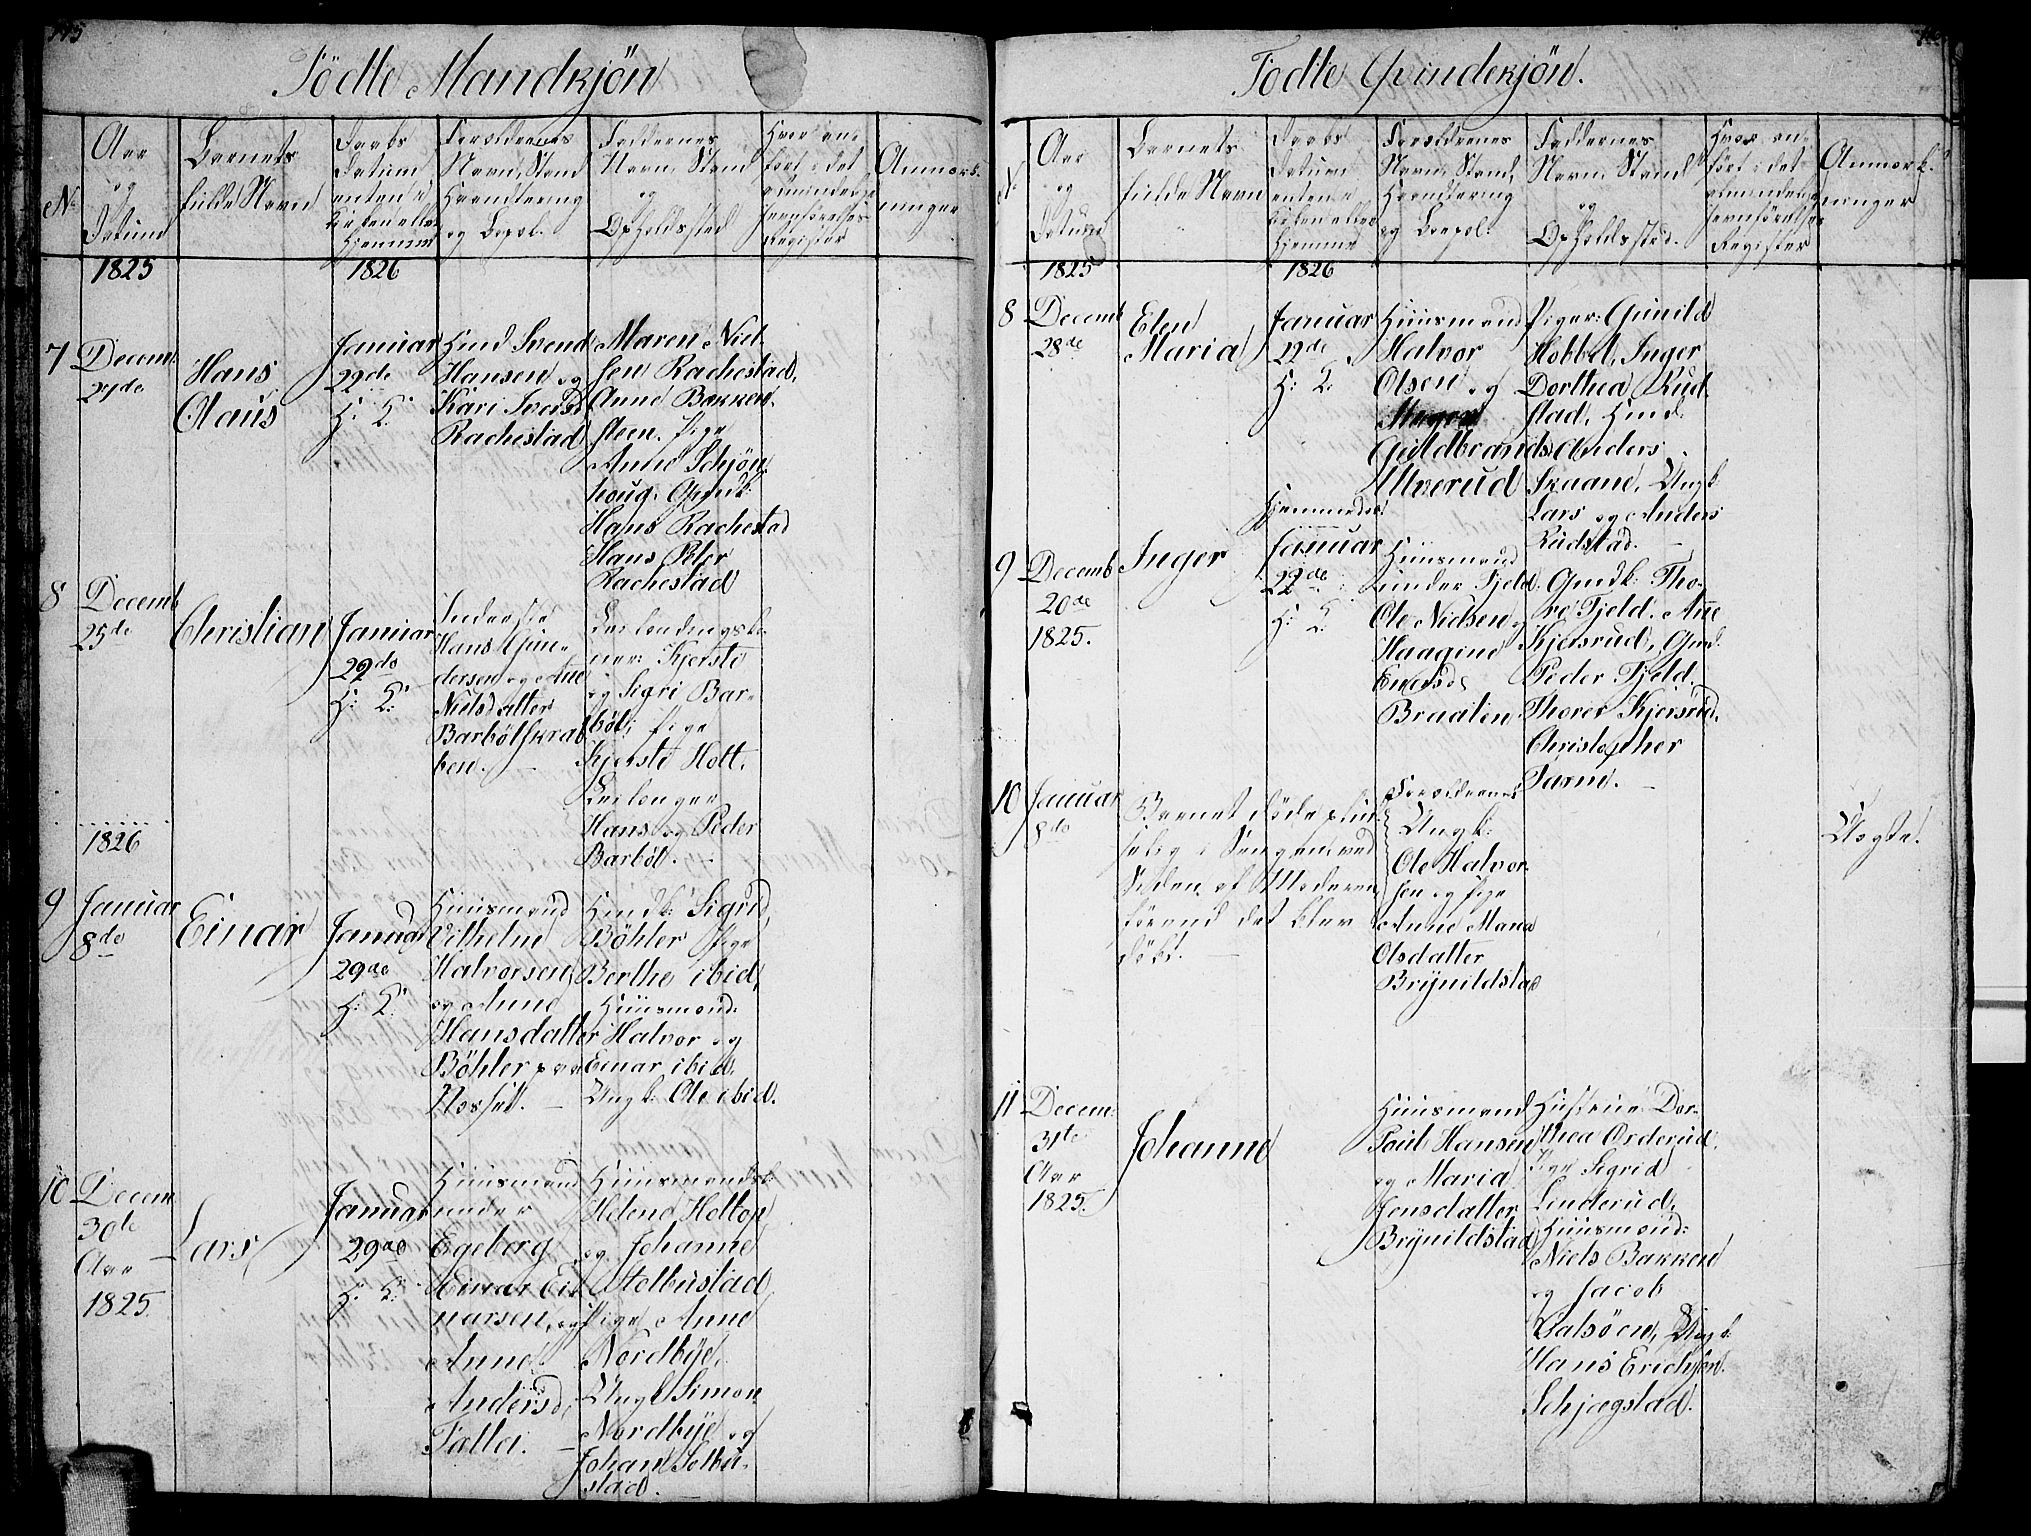 Födte Mandkjön
No
Aar
og
Datum
Barnets
fulde Navn
Daabs
Datum
enten i
Kirken eller
Hjemme
Forældrenes
Navn, Stand
Haandtering
og Bopæl.
Faddernes
Navn, Stand
og
Opholdssted
Hvor an-
fört i det
almindelige
Jevnförelses
Register
Anmærk-
ninger
1825
1826
7
Decem:
27de
Hans
Olaus
Januar
29de
H: K:
Gmd Svend
Hansen og
Kari Iversd
Rachestad
Maren Niel-
sen Rachestad,
Anne Bakken-
steen. Pige
Anne Schjön-
houg. Gmdk:
Hans Rachestad
Hans Peter
Rachestad
8
Decemb
25de
Christian
Januar
29de
H: K:
Inderste
Hans Gun-
dersen og Ane
Nielsdatter
Barbölskrab-
ben.
Kjersti
og Sigri Bar-
böl, Pige
Kjersti Holt.
Hans og Peder
Barböl.
1826
9
Januar
8de
Einar
Januar
29de
H: K:
Huusmand
Vilhelm
Halvorsen
og Anne
Hansdatter
Böhler paa
Gmdk: Sigrid
Böhler Pige
Berthe ibid,
Huusmænd:
Halvor og
Einar ibid.
Ungk: Ole ibid.
10
Decem
30te
Aar
1825.
Lars
Januar
29de
H: K:
Huusmand
under
Egeberg
Einar Ei-
narsen, og
Anne
Andersd.
Tallei.
Huusmandsk:
Helene Heltop
og Johanne
Stelbustad
Pige Anne
Nordbye,
Ungk Simon
Nordbye og
Johan Solbu-
stad.
Födte Qvindekjön.
No
Aar
og
Datum
Barnets
fulde Navn
Daabs
Datum
enten i
Kirken eller
Hjemme
Forældrenes
Navn, Stand,
Haandtering
og Boepæl:
Faddernes
Navn, Stand
og
Opholdssted.
Hvor an-
fört i det
almindelige
Jevnförelses
Register
Anmærk-
ninger
1825
1826
8
Decemb
28de
Elen
Maria
Januar
29de
H: K:
Huusmand
Halvor
Olsen og
Guldbrandsd.
Ulverud
Piger: Gunild
Hobbel, Inger
Dorthea Rud-
stad, Gmd:
Anders
Skaane, Ungk
Lars og Anders
Rudstad.
9
Decemb
20de
1825.
Inger
Hjemmedöbt
Januar
22de
H: K:
Huusmand
under Fjeld
Ole Nielsen og
Haagine
Enersd.
Braaten
Gmdk: Tho-
re Fjeld. Ane
Kjersrud, Gmd:
Peder Fjeld.
Thorer Kjersrud.
Christopher
Tarne.
10
Januar
8de
Barnet döde plud-
selig i Sengen ved
Siden af Moderen
förend det blev
döbt.
Forældrene
Ungk:
Ole Halvor-
sen og Pige
Anne Maria
Olsdatter
Brynildstad
Uægte.
11
Decem:
31te
Aar
1825.
Johanne
Huusmand
Poul Hansen
og Maria
Jensdatter
Brynildstad
Hustrue Dor-
thea Orderud.
Pige Sigrid
Linderud,
Huusmænd:
Niels Bakken
og Jacob
Valsöen, Ungk:
Hans Erichsen
Schjægstad.